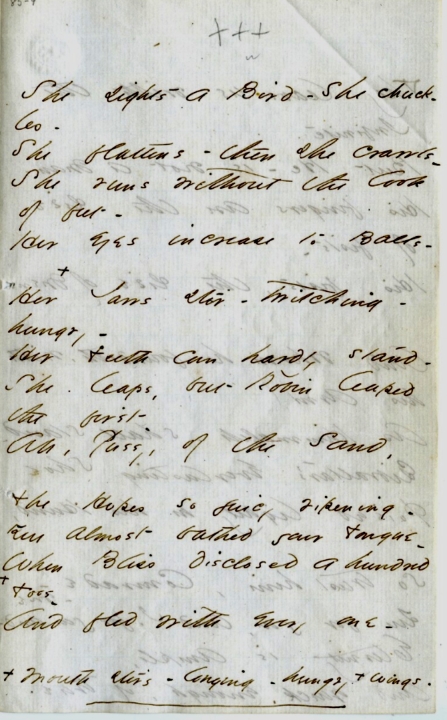 +++
She sights a Bird - She chuck-
les -
She flattens - then she crawls -
She runs without the look
of feet -
Her eyes increase to Balls -
+
Her Jaws stir - twitching -
hungry -
Her Teeth can hardly stand -
She leaps, but Robin leaped
the first -
Ah, Pussy, of the Sand,

The Hopes so juicy ripening -
You almost bathed your Tongue -
When Bliss disclosed a hundred
+ Toes -
And fled with every one -

+ Mouth stirs - longing - hungry, + wings -